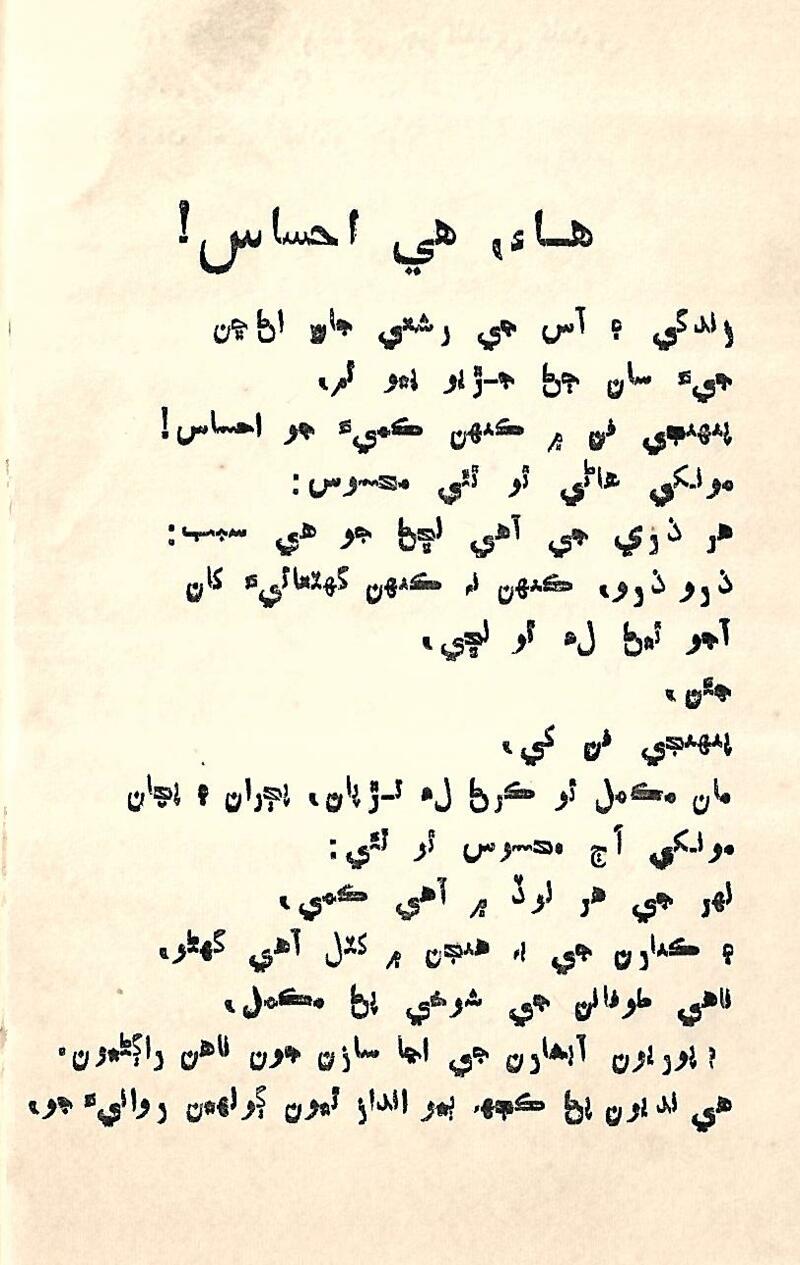 هاءِ، هي احساس!
زندگي ۽ آس جي رشتي جان اڻ ڇن
جيءَ سان ڄڻ جـڙيو پيو ٿم،
پنهنجي فن ۾ ڪنهن ڪميءَ جو احساس!
مونکي هاڻي ٿو ٿئي محسوس:
هر ذري جي آهي لڇڻ جو هي سبب:
ذرو ذرو، ڪنهن نہ ڪنهن گهٽتائيءَ کان
آجو ٿيڻ لءِ ٿو لڇي،
جئن،
پنهنجي فن کي،
مان مڪمل ٿو ڪرڻ لءِ تـڙپان، پڄران ۽ پڄان
مونکي اڄ محسوس ٿو ٿئي:
لهر جي هر لوڏ ۾ آهي ڪمي،
۽ ڪنارن جي بہ هنجن ۾ کٽل آهي گهڻو،
ناهي طوفانن جي شوخي پڻ مڪمل،
۽ پوريون آبشارن جي اڃا سازن جون ناهن راڳڻيون.
هي نديون پڻ ڪجهہ ٻيو انداز ٿيون ڳولهين روانيءَ جو،